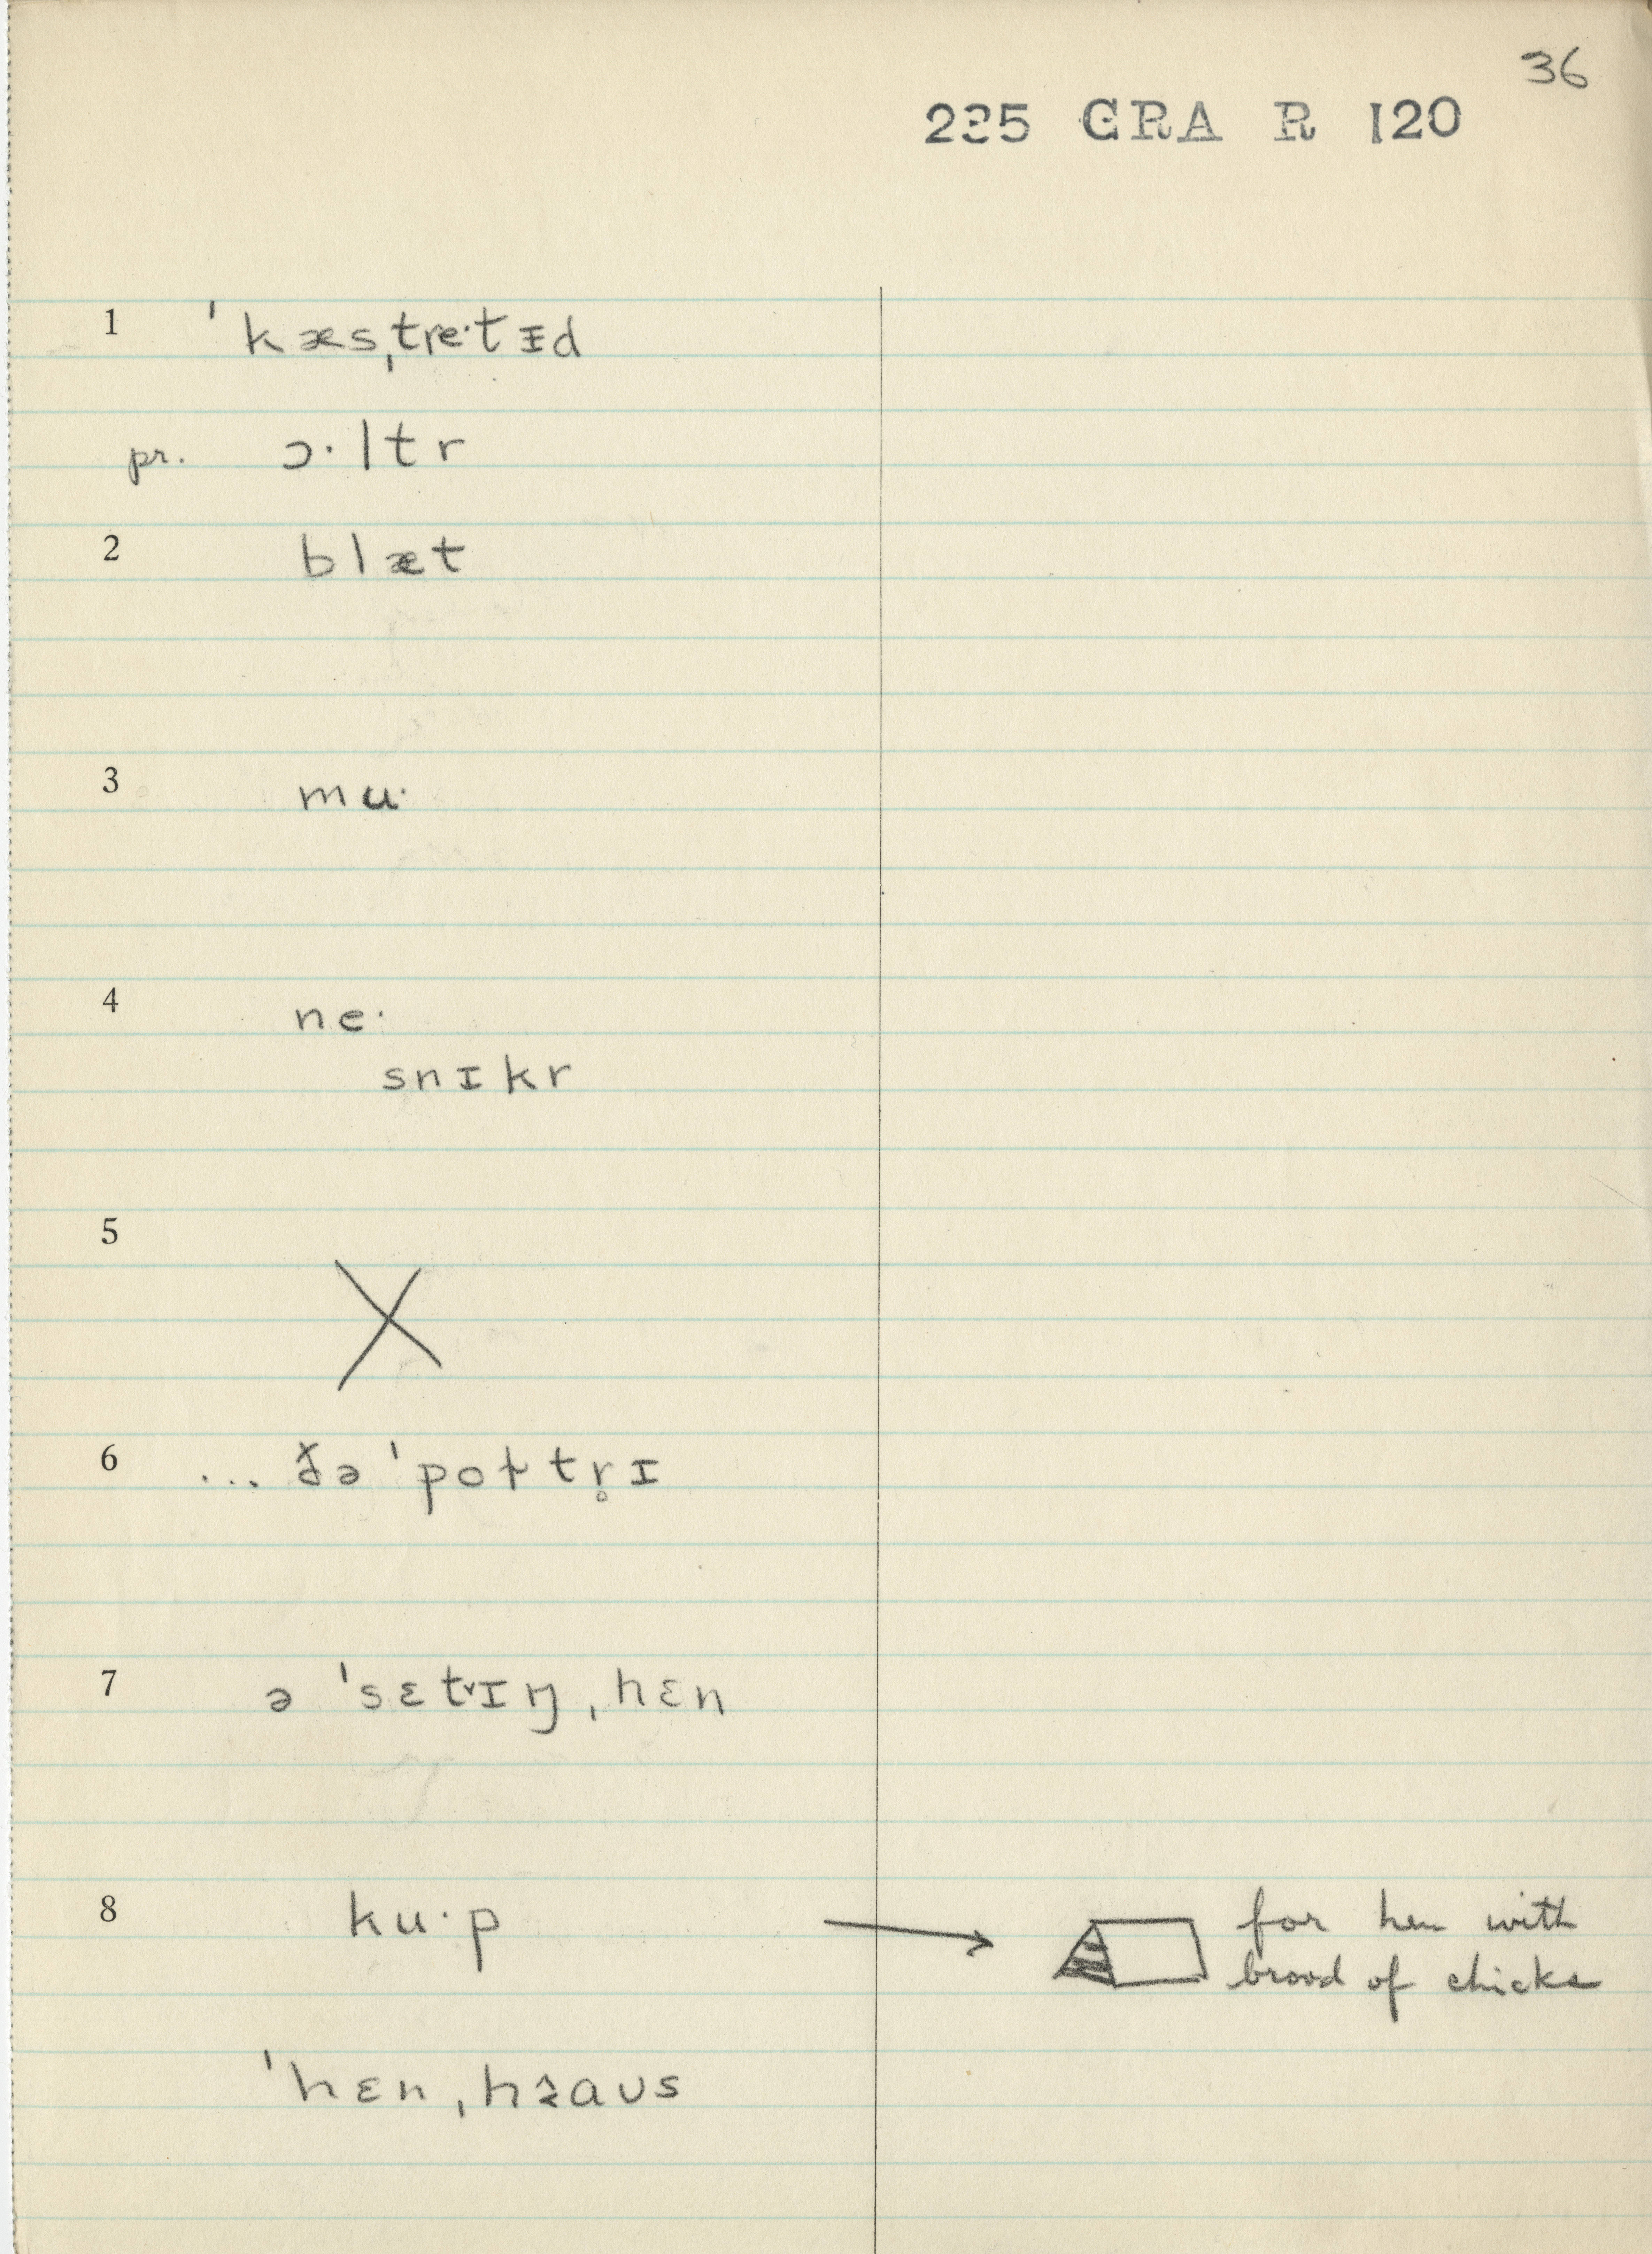 36
235 GRA R 120
1 ˈkæsˌtre·tᵻd
pr. ɔ·ltr
2 blæt
3 mu·
4 ne·
snɪkr
5 X
6 ... ðə ˈpoɫtr̥ɪ
7 ə ˈsɛt̬ɪŋˌhɛn
8 ku·p → for hen with
brood of chicks
ˈhɛnˌhɜaʊs